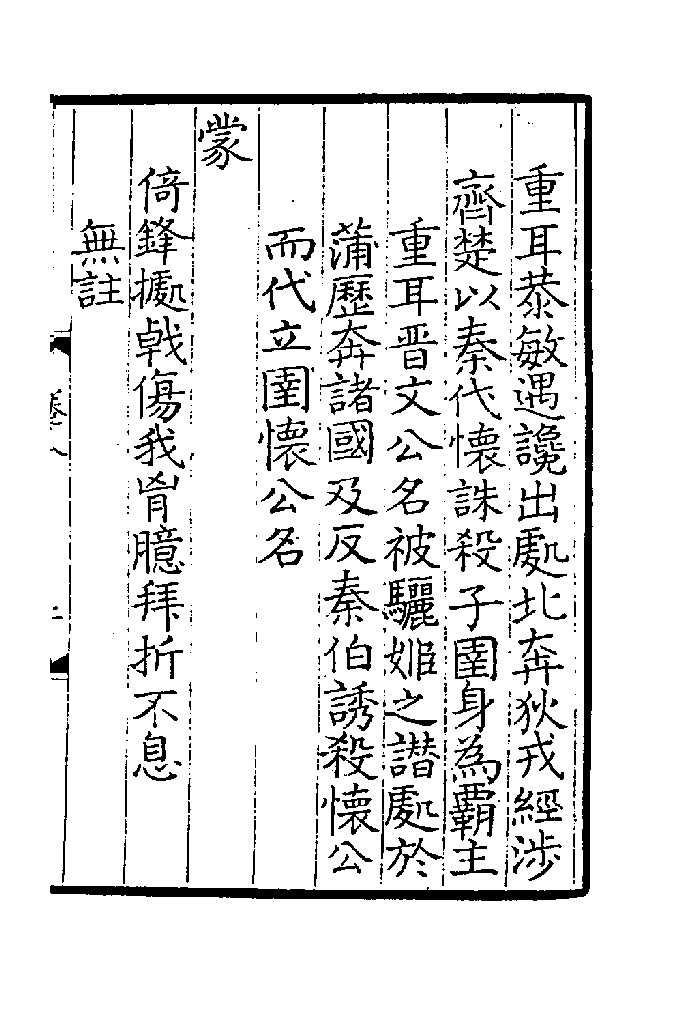 重耳恭敏遇讒出處北奔狄戎經涉
齊楚以秦代懷誅殺子圉身為覇主
重耳晋文公名被驪姬之譖處於
蒲歷奔諸國及反秦伯誘殺懷公
而代立圉懷公名
蒙
倚鋒據戟傷我胷臆拜折不息
無註